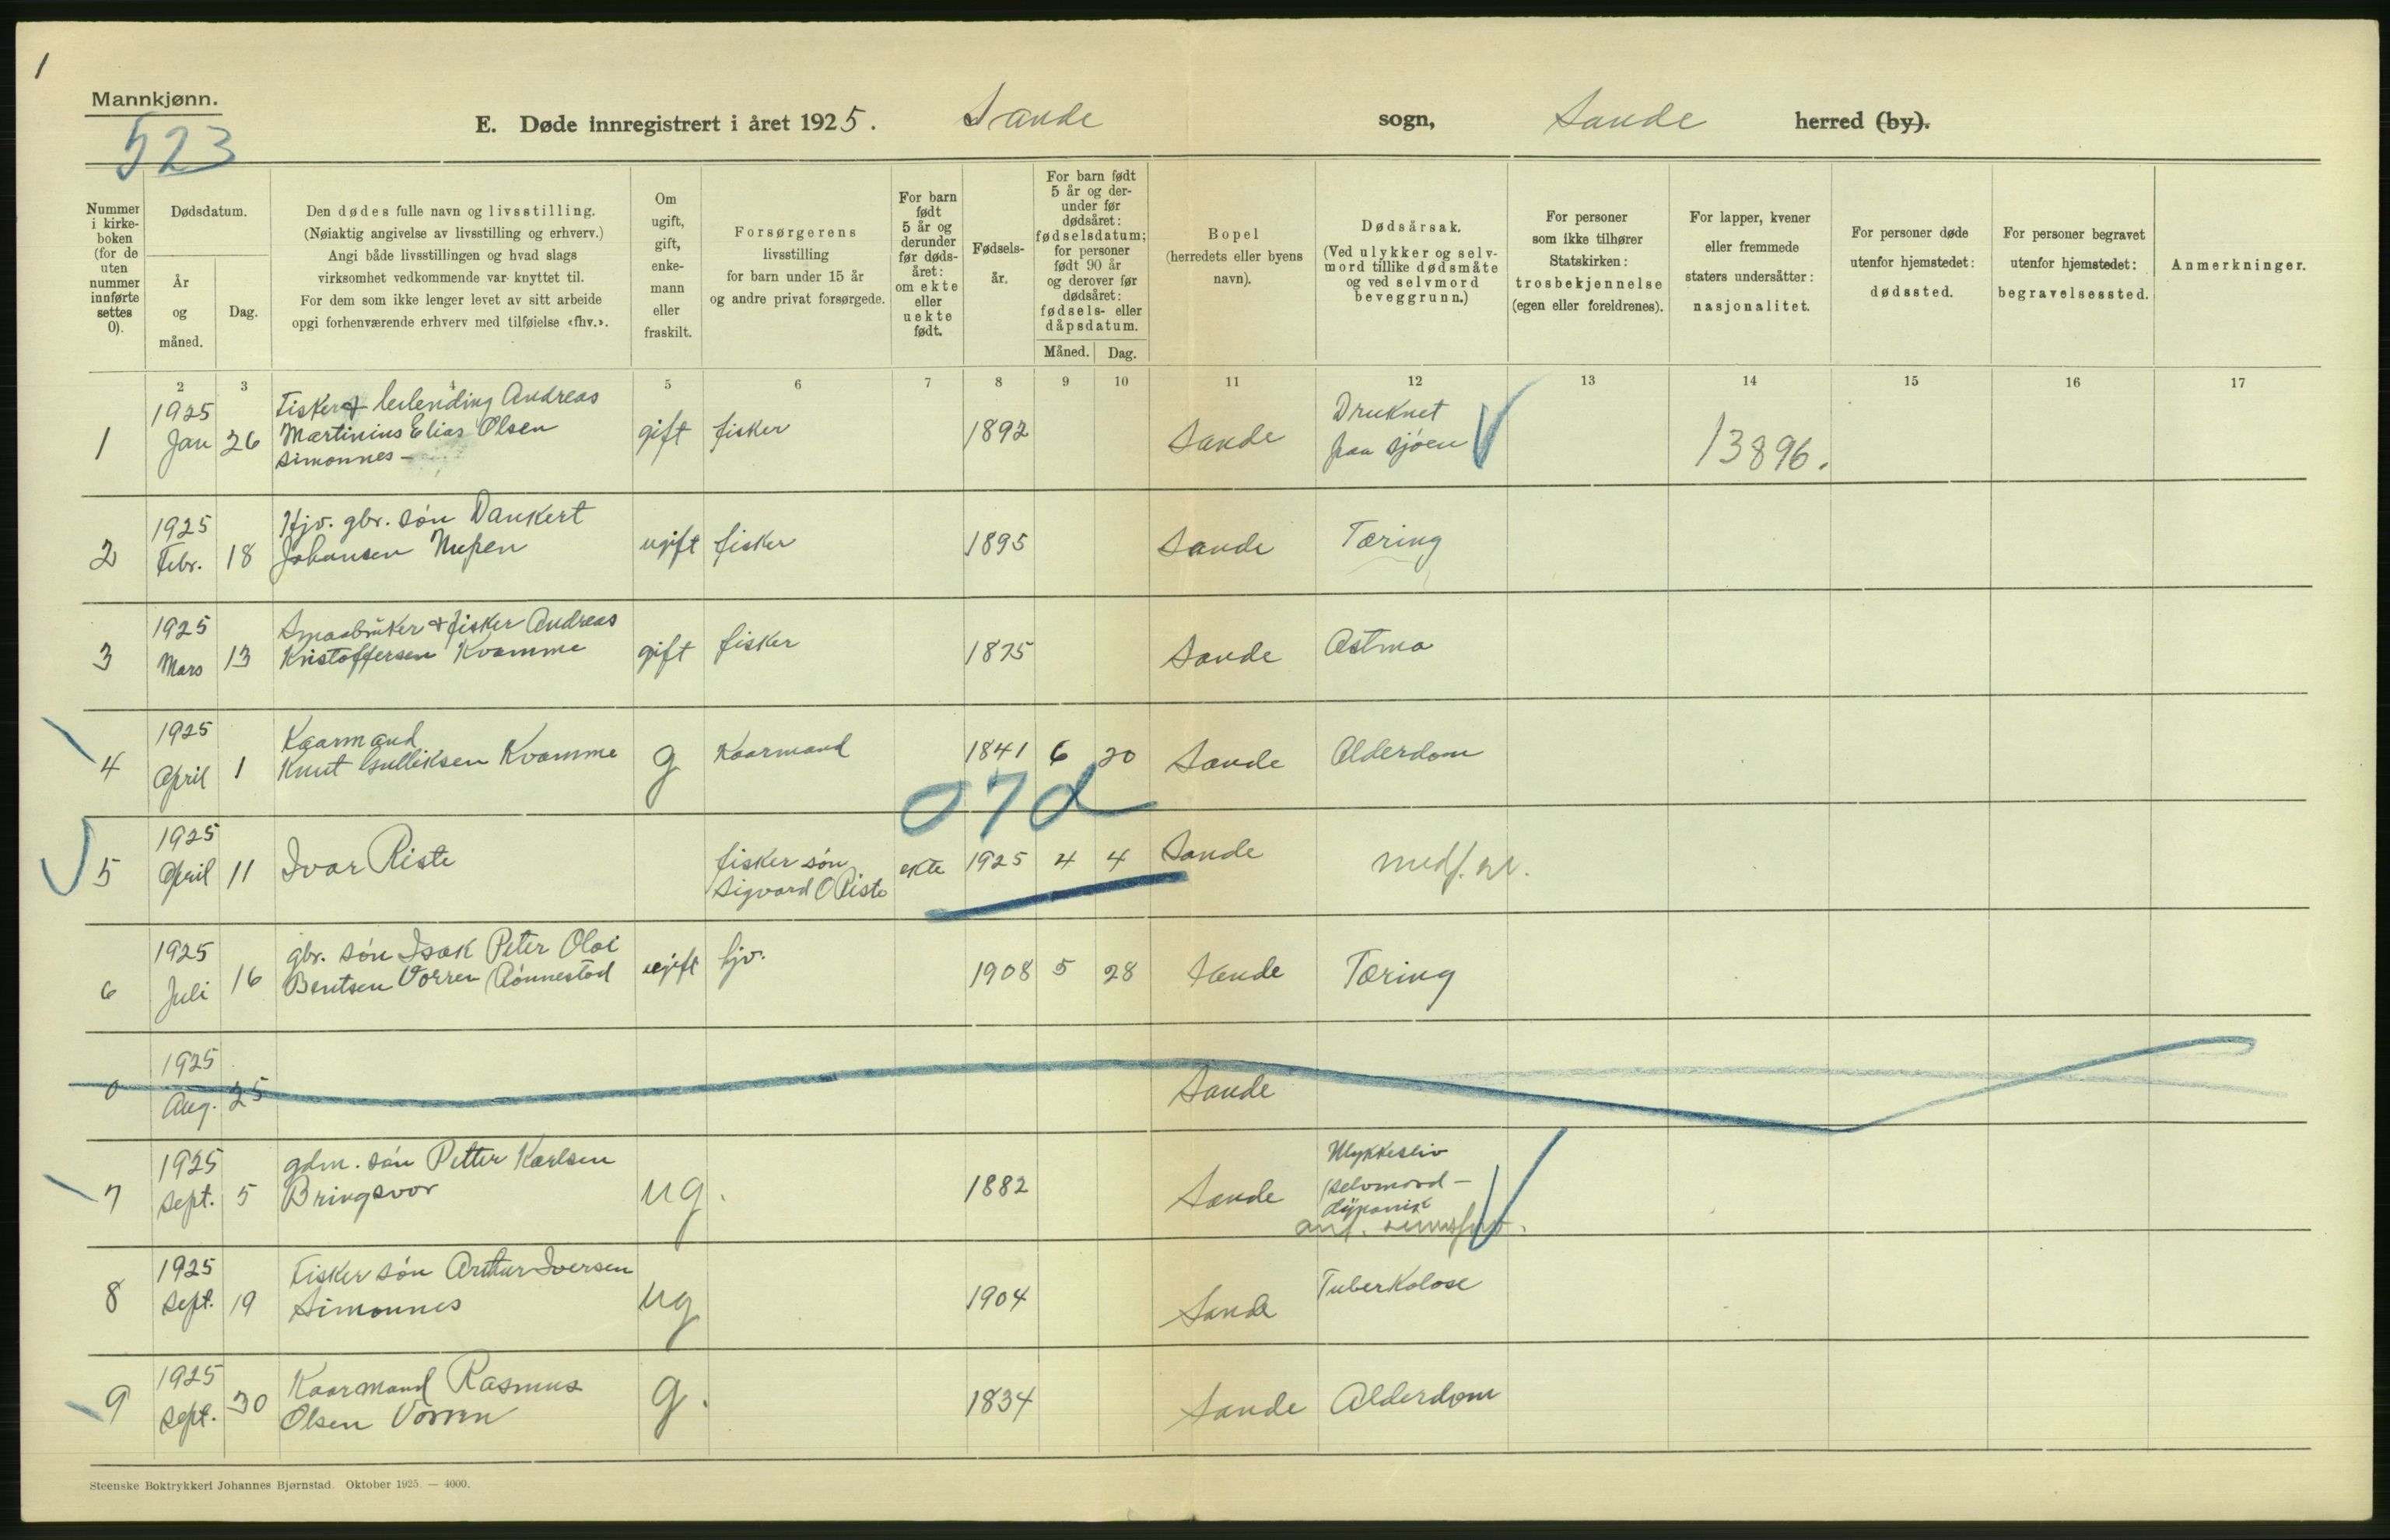 1
Mannkjønn.
523
E. Døde innregistrert i året 1925. Sande sogn, Sande herred (by).
Nummer i kirke- boken (for de uten nummer innførte settes 0).
Dødsdatum.
År og måned.
Dag.
Den dødes fulle navn og livsstilling.
(Nøiaktig angivelse av livsstilling og erhverv.)
Angi både livsstillingen og hvad slags
virksomhet vedkommende var knyttet til.
For dem som ikke lenger levet av sitt arbeide
opgi forhenværende erhverv med tilføielse «fhv.».
Om ugift, gift, enke- mann eller fraskilt.
Forsørgerens
livsstilling
for barn under 15 år
og andre privat forsørgede.
For barn født 5 år og derunder før døds- året: om ekte eller uekte født.
Fødsels- år.
For barn født 5 år og der- under før dødsåret: fødselsdatum; for personer født 90 år og derover før dødsåret: fødsels- eller dåpsdatum.
Måned. Dag.
Bopel
(herredets eller byens
navn).
Dødsårsak.
(Ved ulykker og selv-
mord tillike dødsmåte
og ved selvmord
beveggrunn.)
For personer
som ikke tilhører
Statskirken:
trosbekjennelse
(egen eller foreldrenes).
For lapper, kvener
eller fremmede
staters undersåtter:
nasjonalitet.
For personer døde
utenfor hjemstedet:
dødssted.
For personer begravet
utenfor hjemstedet:
begravelsessted.
Anmerkninger.
2 3 4 5 6 7 8 9 10 11 12 13 14 15 16 17
1 1925 Jan 26
Fisker & leilending Andreas
Martinius Elias Olsen
Simonnes -
gift fisker 1892 Sande
Druknet
paa sjøen
13896.
2 1925 Febr. 18
Hjv. gbr. søn Dankert
Johansen Nupen
ugift fisker 1895 Sande Tæring
3 1925 Mars 13
Smaabruker & fisker Andreas
Kristoffersen Kvamme
gift fisker 1875 Sande Astma
4 1925 April 1
Kaarmand
Knut Gulliksen Kvamme
g Kaarmand 1841 6 20 Sande Alderdom
07d
5 1925 April 11
Ivar Riste
fisker søn
Sigvard O Riste
ekte 1925 4 4 Sande
medf. sv.
6 1925 Juli 16
gbr. søn Isak Peter Olai
Bentsen Vorren Rønnestad
ugift hjv. 1908 5 28 Sande Tæring
0 1925 Aug. 25 Sande
7 1925 Sept. 5
gdm. søn Petter Karlsen
Bringsvor
ug. 1882 Sande
Ulykkesliv
(selvmord -
8 1925 Sept. 19
Fisker søn Arthur Iversen
Simonnes
ug 1904 Sande Tuberkolose
9 1925 Sept. 30
Kaarmand Rasmus
Olsen Vorren
g. 1834 Sande Alderdom
Steenske Boktrykkeri Johannes Bjørnstad. Oktober 1925. — 4000.